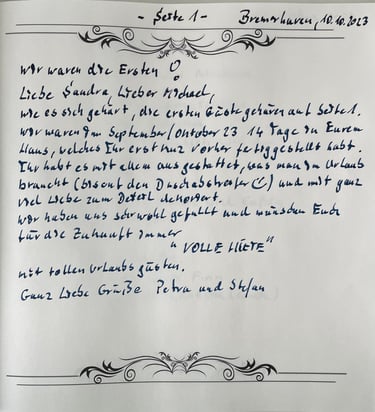 - Seite 1 - Bremerhaven, 10.10.2023
Wir waren die Ersten!
Liebe Sandra, Lieber Michael,
wie es sich gehört, die ersten Gäste gehören auf Seite 1.
Wir waren im September/Oktober 23 14 Tage in Eurem
Haus, welches Ihr erst kurz vorher fertiggestellt habt.
Ihr habt es mit allem ausgestattet, was man im Urlaub
braucht (bis auf den Duschabstreifer) und mit ganz
viel Liebe zum Detail dekoriert.
Wir haben uns sehr wohl gefühlt und wünschen Euch
für die Zukunft immer
"VOLLE HÜTTE"
mit tollen Urlaubsgästen.
Ganz Liebe Grüße Petra und Stefan